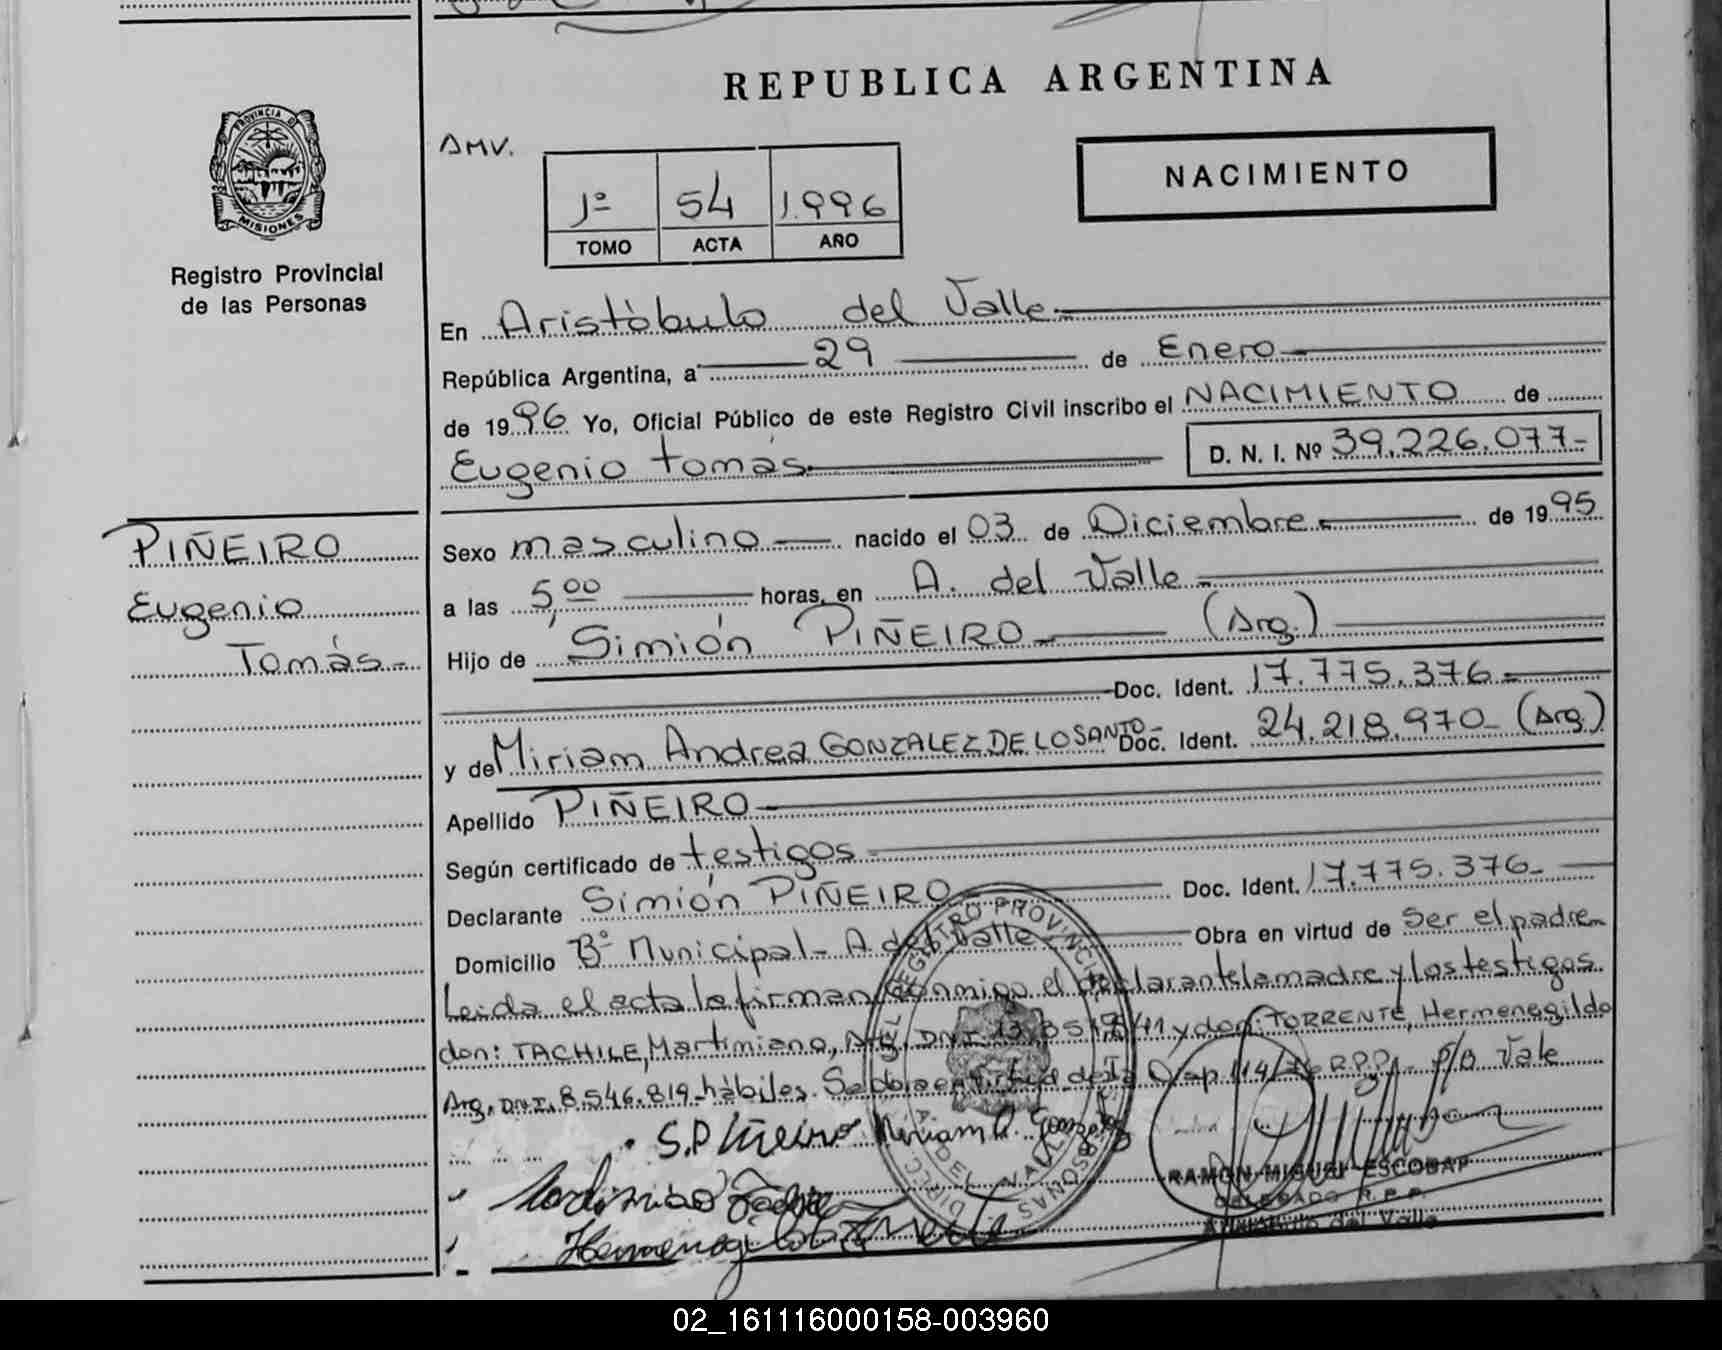 REPUBLICA ARGENTINA
PROVINCIA D
MISIONES
Registro Provincial
de las Personas
AMV.
NACIMIENTO
1º 54 1.996
TOMO ACTA AÑO
En Aristóbulo del Valle
República Argentina, a 29 de Enero
de 1996 Yo, Oficial Público de este Registro Civil inscribo el NACIMIENTO de
Eugenio tomás D. N. I. Nº 39.226.077-
PIÑEIRO
Eugenio
Tomás-
Sexo masculino nacido el 03 de Diciembre de 1995
a las 5,00 horas, en A. del Valle
Hijo de Simión PIÑEIRO (Arg.)
Doc. Ident. 17.775.376
y de Miriam Andrea GONZALEZ DE LOS SANTO- Doc. Ident. 24.218.970- (Arg.)
Apellido PIÑEIRO
Según certificado de testigos
Declarante Simión PIÑEIRO Doc. Ident. 17.775.376-
Domicilio Bº Municipal- A. del Valle Obra en virtud de Ser el padre
Leida el acta la firman conmigo el declarante la madre y los testigos
don: TACHILE, Martimiano, Arg. DNI. y don TORRENTE, Hermenegildo
Arg. DNI. 8.546.819-hábiles. p/o Vale
S. Piñeiro Miriam A. Gonzalez
Hermenegildo
RAMON MIGUEL ESCOBAR
DELEGADO R.P.P.
Aristóbulo del Valle
02_161116000158-003960